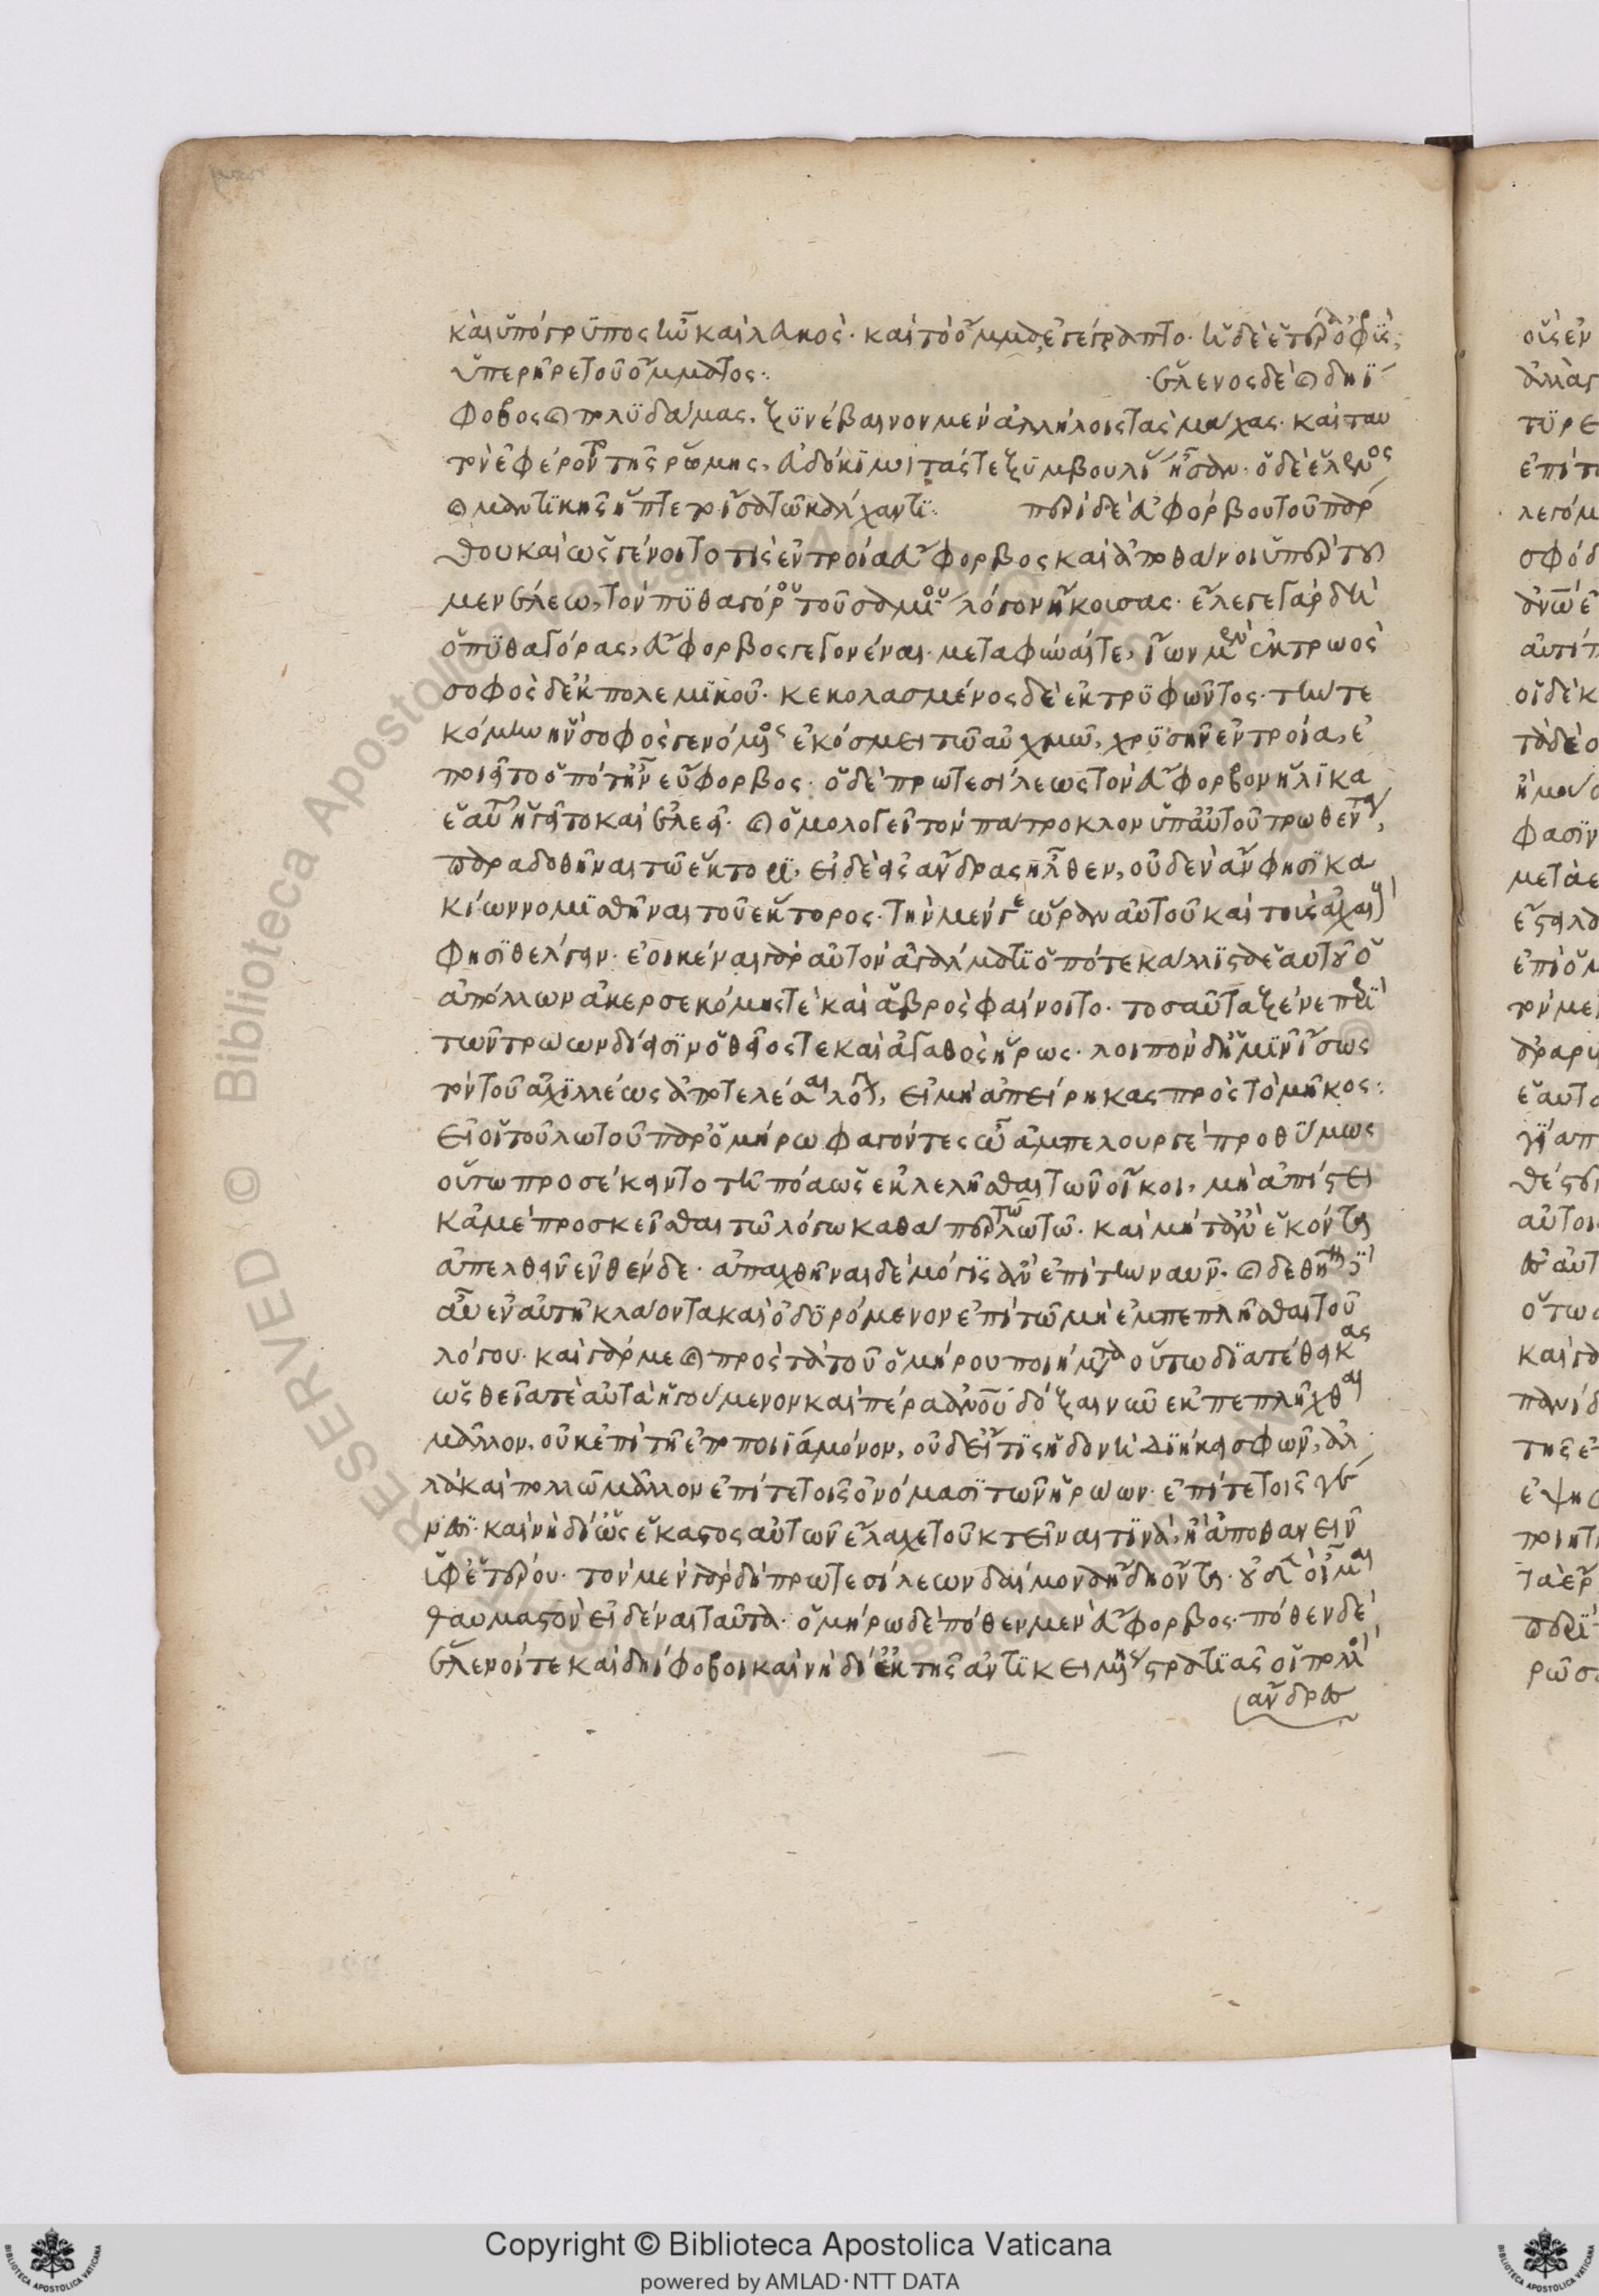 καὶ ὑπόγρυπος ἦν καὶ λευκὸς· καὶ τὸ ὄμμα ἐγέγραπτο· ἡ δὲ ἑτέρα ὀφρὺς,
ὑπερῆρε τοῦ ὄμματος:
Ἕλενος δὲ καὶ δηΐ
φοβος καὶ πολυδάμας, ξυνέβαινον μὲν ἀλλήλοις τὰς μάχας· καὶ ταυ
τὸν ἐφέροντο τῆς ῥώμης, εὐδόκιμοι τὰς τε ξυμβουλί ἦσαν· ὁ δὲ ἕλενος
καὶ μαντικῆς ἥπτετο ἴσα τῶ κάλχαντι: περὶ δὲ εὐφόρβου τοῦ πάν
θου καὶ ὡς γένοιτό τις ἐν τροία εὔφορβος καὶ ἀποθάνοι ὑπὸ τοῦ
μενέλεω, τὸν πυθαγόρου τοῦ σαμίου λόγον ἤκουσας· ἔλεγε γὰρ δὴ
ὁ πυθαγόρας, εὔφορβος γεγονέναι· μεταφῦναί τε, ἴων μὲν ἐκ τρωὸς
σοφὸς δ' ἐκ πολεμικοῦ· κεκολασμένος δὲ ἐκ τρυφῶντος· τήν τε
κόμην ἣν σοφὸς γενόμενος ἐκόσμει τῶ αὐχμῶ, χρυσῆν ἐν τροία, ἐ
ποιεῖτο ὁπότ' ἦν εὔφορβος· ὁ δὲ πρωτεσίλεως τὸν εὔφορβον ἥλικα
ἑαυτοῦ ἡγεῖτο καὶ ἐλεεῖ· καὶ ὁμολογεῖ τὸν πάτροκλον ὑπ' αὐτοῦ τρωθέντα,
παραδοθῆναι τῶ ἕκτορι, εἰ δὲ εἰς ἄνδρας ἦλθεν, οὐδὲν ἂν φησὶ κα
κίων νομισθῆναι τοῦ ἕκτορος· τὴν μέν γε ὥραν αὐτοῦ καὶ τοὺς ἀχαιοὺς
φησὶ θέλγειν· ἐοικέναι γὰρ αὐτὸν ἀγάλματι ὁπότε κάλλιστα ἑαυτοῦ ὁ
ἀπόλλων ἀκερσεκόμης τὲ καὶ ἁβρὸς φαίνοιτο· τοσαῦτα ξένε περὶ
τῶν τρώων δίεισιν ὁ θεῖος τε καὶ ἀγαθὸς ἥρως· λοιπὸν δ' ἡμῖν ἴσως
τὸν τοῦ ἀχιλλέως ἀποτελέσαι λόγον, εἰ μὴ ἀπείρηκας πρὸς τὸ μῆκος:
εἰ οἱ τοῦ λωτοῦ παρ' ὁμήρω φαγόντες ὦ ἀμπελουργὲ προθύμως
οὕτω προσέκειντο τῆ πόα ὡς ἐκλελῆσθαι τῶν οἴκοι, μὴ ἀπίστει
κἀμὲ προσκεῖσθαι τῶ λόγω καθάπερ τῶ λωτῶ· καὶ μήτ' ἂν ἑκόντα
ἀπελθεῖν ἐνθένδε· ἀπαχθῆναι δὲ μόγις ἂν ἐπὶ τὴν ναῦν· καὶ δεθῆναι
αὖ ἐν αὐτῆ κλάοντα καὶ ὀδυρόμενον ἐπὶ τῶ μὴ ἐμπεπλῆσθαι τοῦ
λόγου· καὶ γάρ με καὶ πρὸς τὰ τοῦ ὁμήρου ποιήματα οὕτω διατέθεικας
ὡς θεῖά τε αὐτὰ ἡγούμενον καὶ πέρα ἀνθρώπου δόξαι νῦν ἐκπεπλῆχθαι
μᾶλλον, οὐκ ἐπὶ τῆ ἐποποιΐα μόνον, οὐδ' εἴ τις ἡδονὴ διήκει σφῶν, ἀλ
λὰ καὶ πολλῶ μᾶλλον ἐπί τε τοῖς ὀνόμασι τῶν ἡρώων· ἐπί τε τοῖς γέ
νεσι· καὶ νὴ δί' ὡς ἕκαστος αὐτῶν ἔλαχε τοῦ κτεῖναι τινὰ, ἢ ἀποθανεῖν
ὑφ' ἑτέρου· τὸν μὲν γὰρ δὴ πρωτεσίλεων δαίμονα ἤδη ὄντα· οὐδὲν οἶμαι
θαυμαστὸν εἰδέναι ταῦτα· ὁμήρω δὲ πόθεν μὲν εὔφορβος· πόθεν δὲ
ἕλενοί τε καὶ δηΐφοβοι καὶ νὴ δί' ἐκ τῆς ἀντικειμένης στρατιᾶς οἱ πολλοὶ
ἄνδρες
Copyright © Biblioteca Apostolica Vaticana
powered by AMLAD·NTT DATA